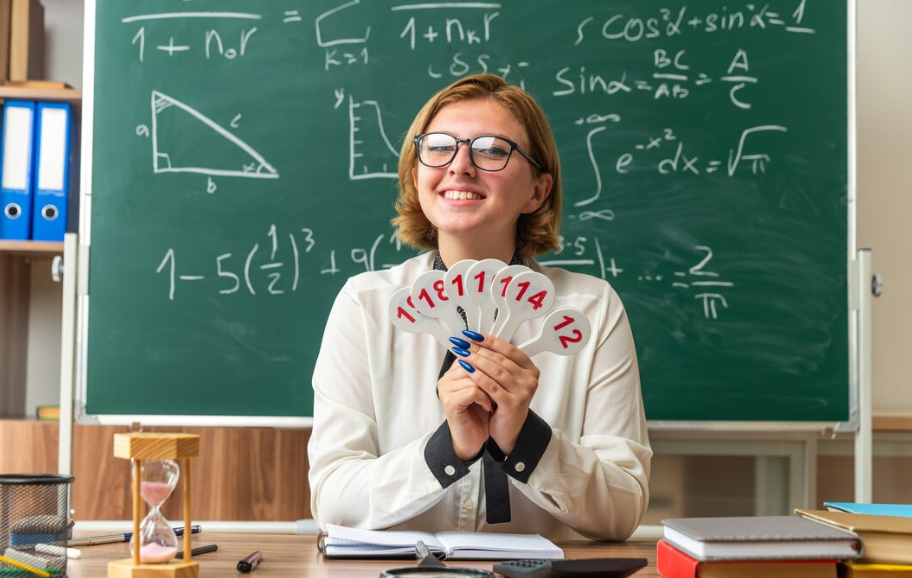 1 + n₀r = K=1 1 + nₖr
cos²α + sin²α = 1
sinα = BC/AB = A/C
a c b
y
e^-x² dx = √π
1 - 5(1/2)³ + 9( + ... 2/π
18 1 1 1 14 12